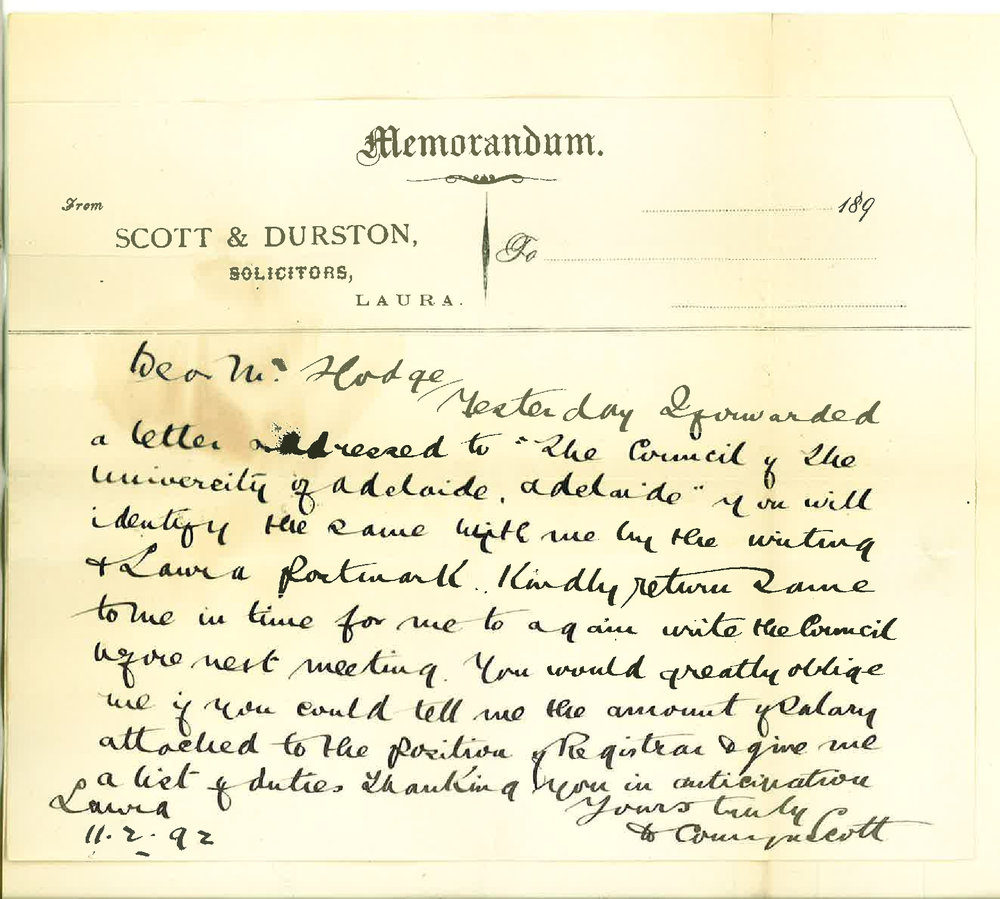 Memorandum.
From
189
SCOTT & DURSTON,
To
SOLICITORS,
LAURA.
Dear Mr. Hodge,
Yesterday I forwarded
a letter addressed to "The Council of The
Univercity of Adelaide, Adelaide" you will
identify the same with me by the writing
& Laura Postmark. Kindly return same
to me in time for me to again write the Council
before next meeting. You would greatly oblige
me if you could tell me the amount of Salary
attached to the position of Registrar & give me
a list of duties Thanking you in anticipation
Laura
Yours truly
11.2.92
Comyn Scott